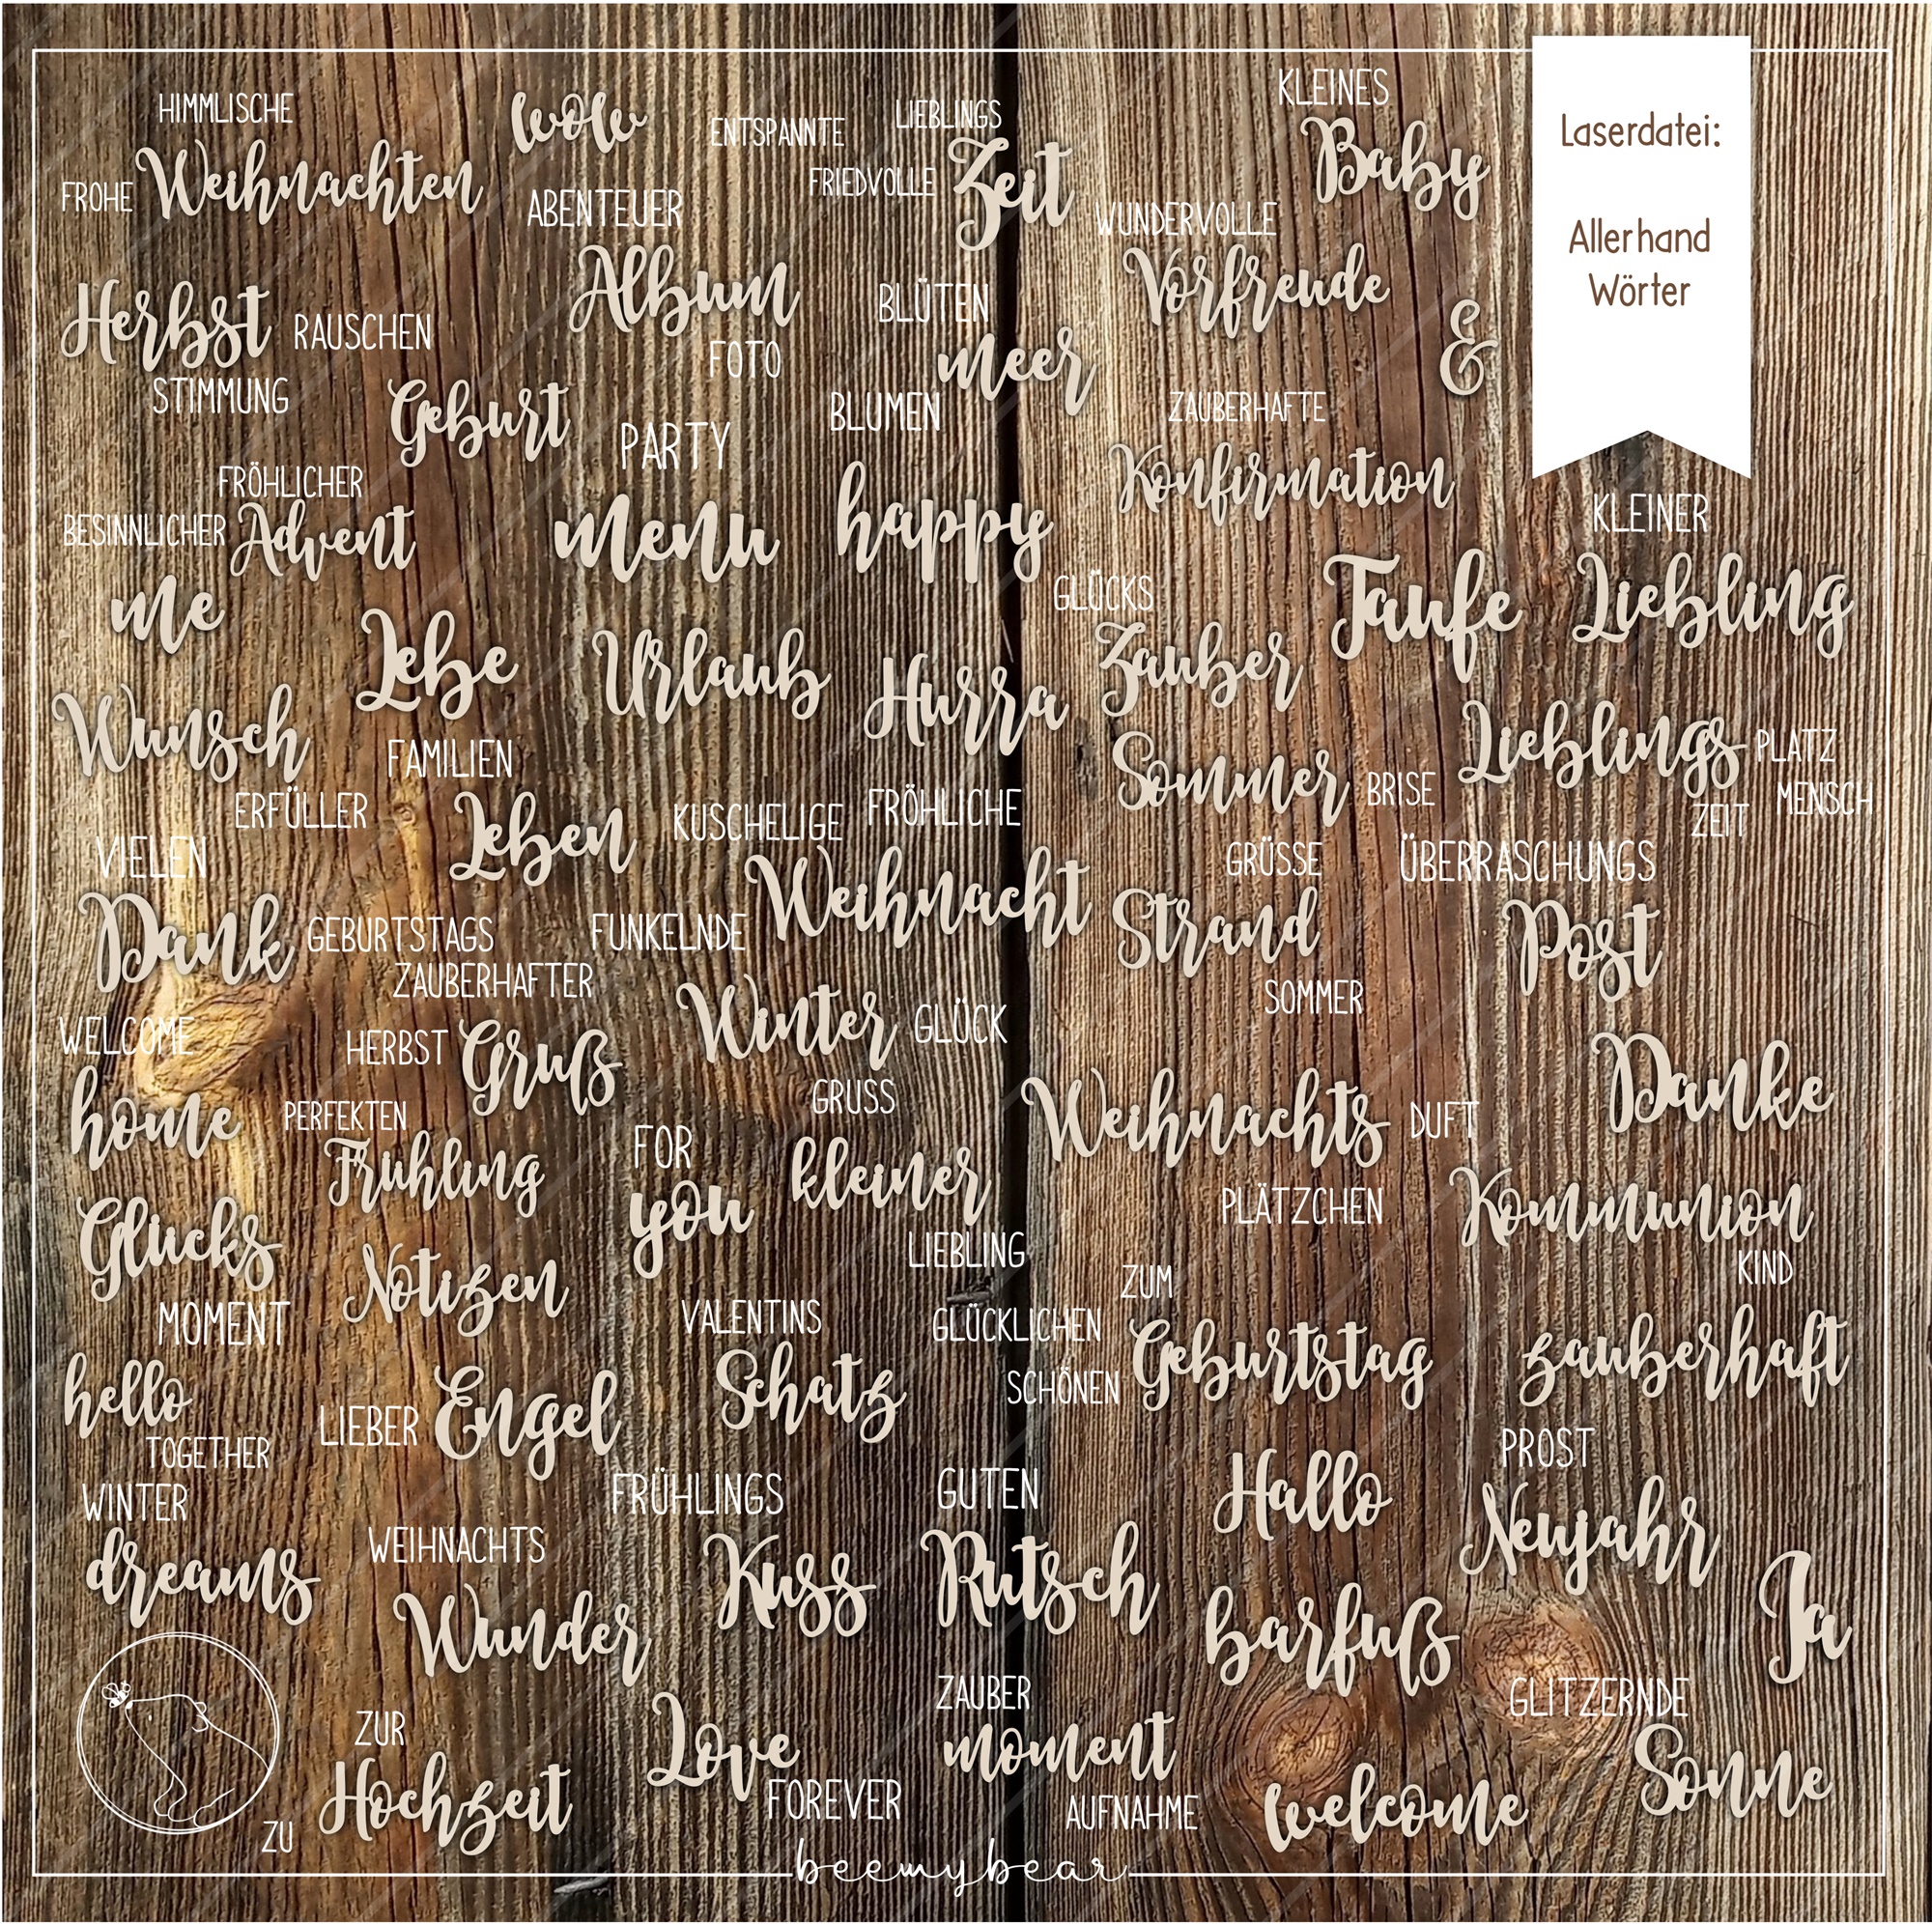 Laserdatei:
Allerhand
Wörter
HIMMLISCHE
FROHE Weihnachten
wow
ENTSPANNTE
LIEBLINGS
FRIEDVOLLE Zeit
KLEINES
Baby
ABENTEUER
Album
FOTO
WUNDERVOLLE
Vorfreude
&
Herbst RAUSCHEN
STIMMUNG
BLÜTEN
meer
BLUMEN
Geburt
PARTY
ZAUBERHAFTE
Konfirmation
FRÖHLICHER
BESINNLICHER Advent
menu
happy
KLEINER
Liebling
Taufe
me
Lebe
Urlaub
Hurra
GLÜCKS
Zauber
Wunsch
ERFÜLLER
FAMILIEN
Leben
Sommer BRISE
Lieblings PLATZ
ZEIT MENSCH
VIELEN
Dank GEBURTSTAGS
KUSCHELIGE FRÖHLICHE
FUNKELNDE Weihnacht
GRÜSSE
Strand
SOMMER
ÜBERRASCHUNGS
Post
ZAUBERHAFTER
HERBST Gruß
Winter GLÜCK
GRUSS
WELCOME
home
PERFEKTEN
Frühling
FOR
you
kleiner
LIEBLING
Weihnachts DUFT
PLÄTZCHEN
Danke
Kommunion
KIND
Glücks
MOMENT
Notizen
VALENTINS
Schatz
ZUM
GLÜCKLICHEN
SCHÖNEN Geburtstag
zauberhaft
hello
TOGETHER
LIEBER Engel
WINTER
dreams
WEIHNACHTS
Wunder
FRÜHLINGS
Kuss
GUTEN
Rutsch
Hallo
PROST
Neujahr
barfuß
Ja
ZUR
ZU Hochzeit
Love
FOREVER
ZAUBER
moment
AUFNAHME
welcome
GLITZERNDE
Sonne
beemybear